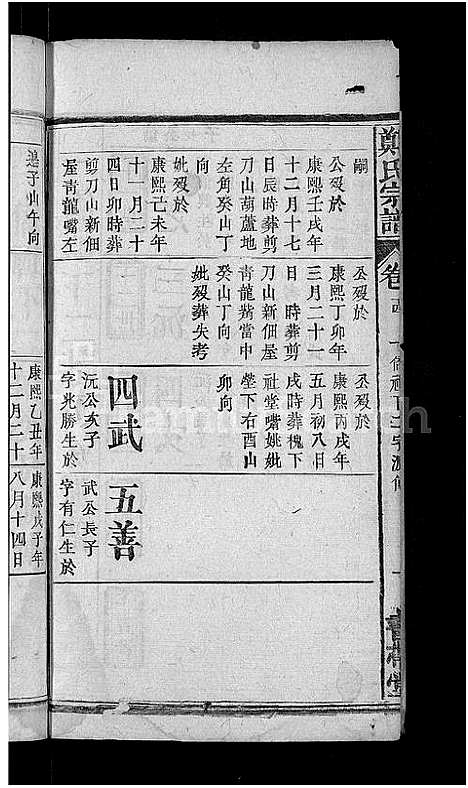 鄭氏宗譜
卷
嗣
公歿於
康熙壬戌年
十二月十七
日辰時葬剪
刀山葫蘆地
左角癸山丁
向
妣歿於
康熙己未年
十一月二十
四日卯時葬
剪刀山新佃
屋靑龍嘴左
公歿於
康熙丁卯年
三月二十一
日　時葬剪
刀山新佃屋
靑龍嘴當中
癸山丁向
妣歿葬失考
公歿於
康熙丙戌年
五月初八日
戌時葬槐下
社堂嘴姚妣
塋下右酉山
卯向
四武
沅公次子
字兆勝生於
五善
武公長子
字有仁生於
邉子山午向
康熙乙丑年
十二月二十
康熙戊子年
八月十四日